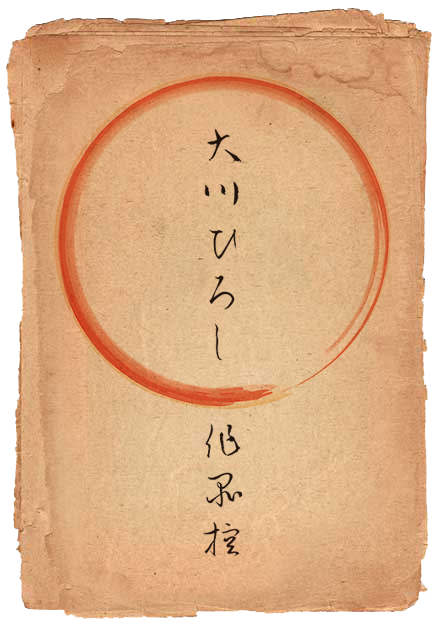 大川ひろし作品控